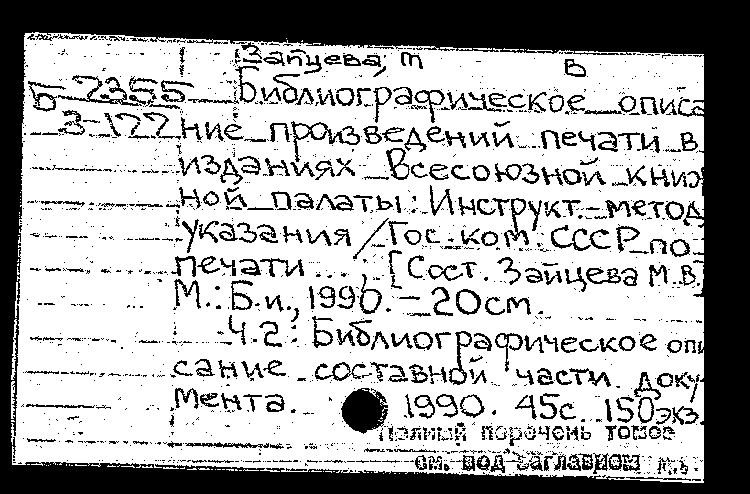 Зайцева, М
В
Б-2355
Библиографическое описа
З-177
ние произведений печати в
изданиях Всесоюзной книж
ной палаты: Инструкт.-метод.
указания / Гос. ком. СССР по
печати ... ; [Сост. Зайцева М.В.]
М.: Б.и., 1990. - 20см.
Ч.2: Библиографическое опи
сание составной части доку-
мента. 1990. 45с. 150экз.
Полный перечень томов
см. под заглавием